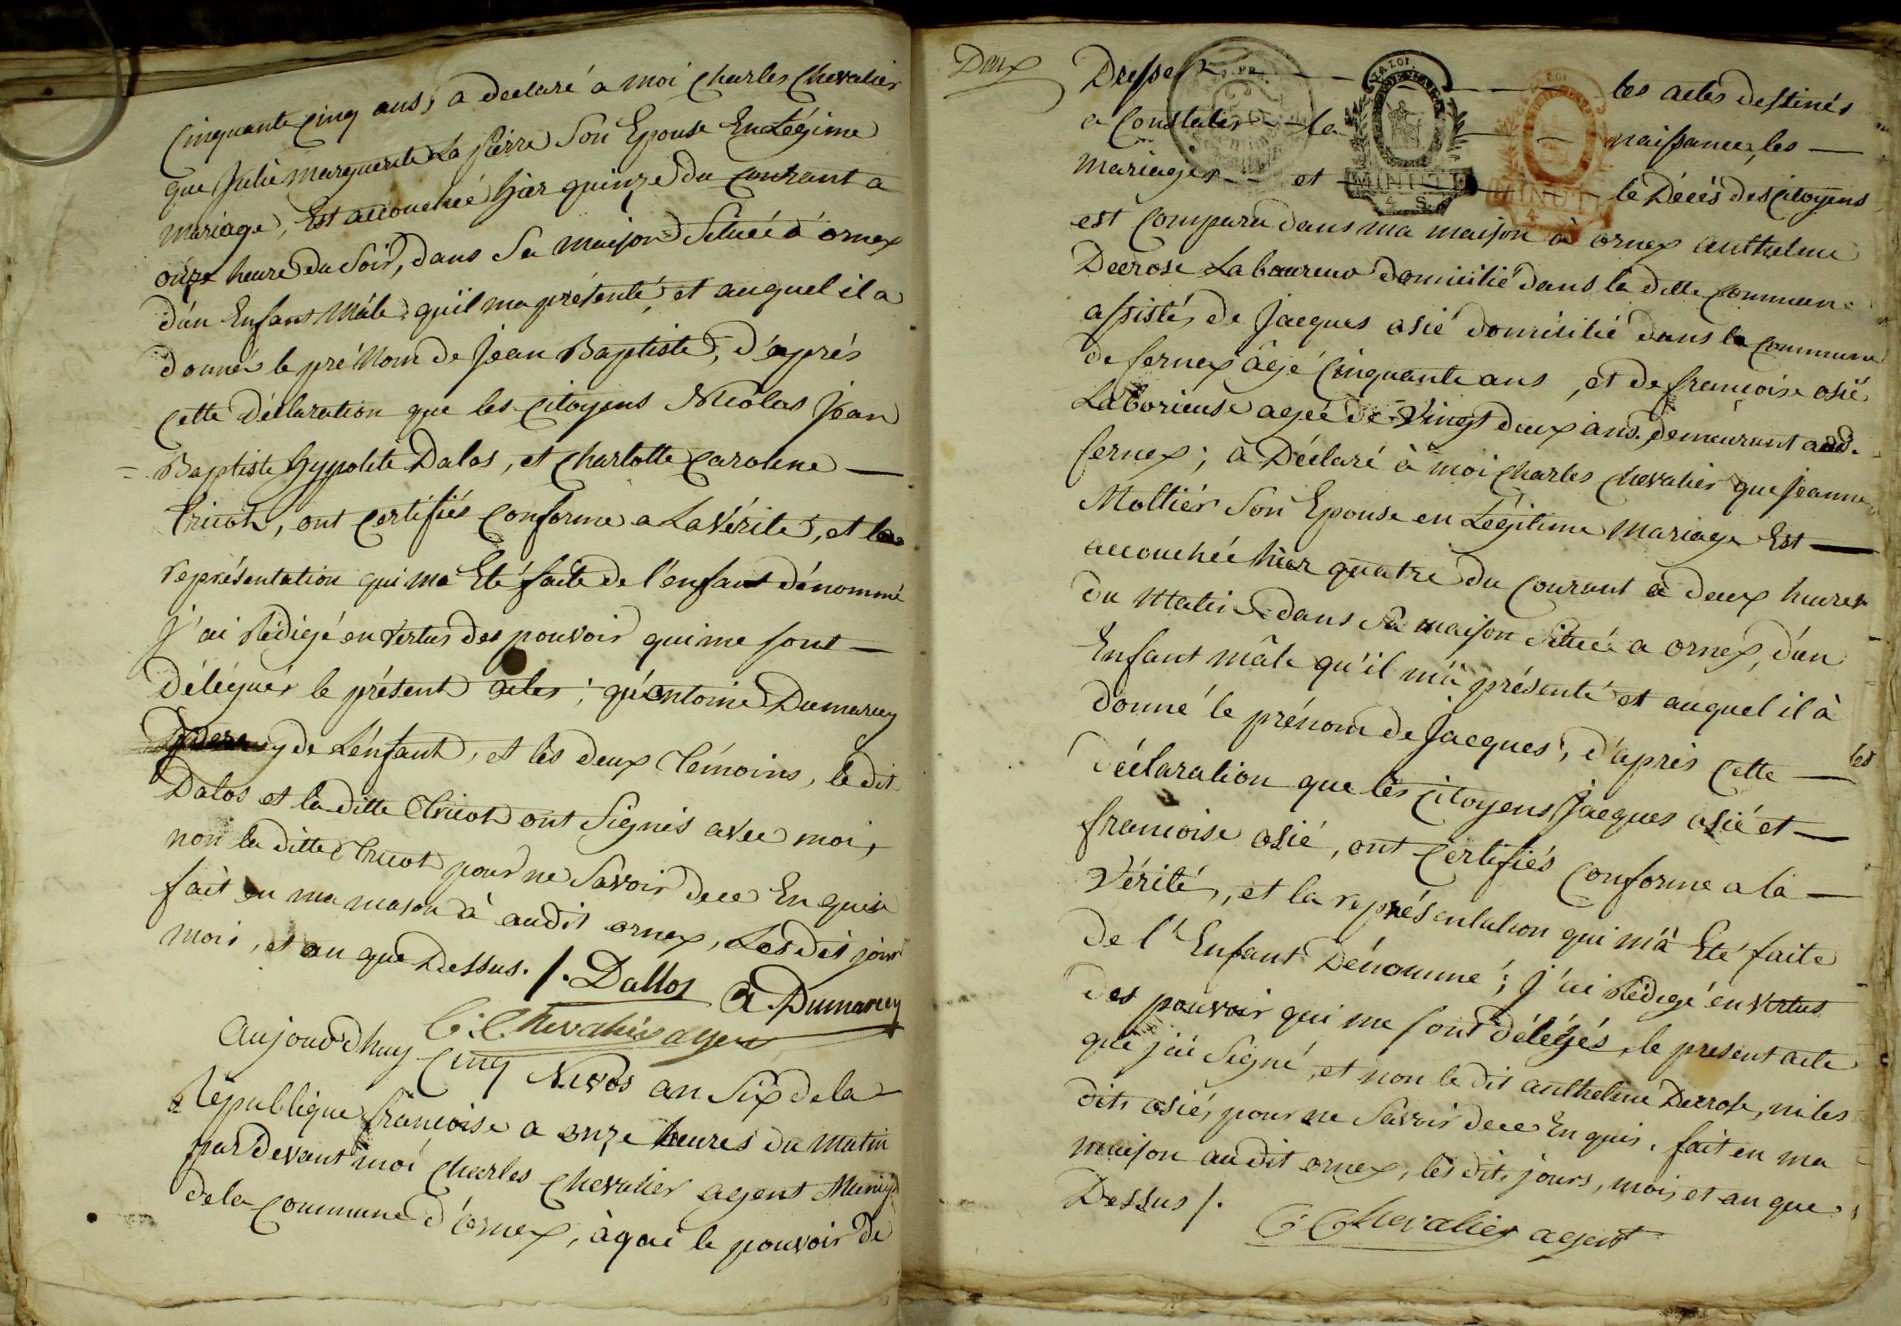 Cinquante Cinq ans, a declaré a moi Charles Chevalier
que Julie Marguerite La pierre Son Epouse En Légime
mariage, Est accouchée hier quinze du Courant a
onze heure du Soir, dans Sa maison Situéé à ornex
d'un Enfant Mâle qu'il ma présenté, et auquel il a
donné le pré Nom de Jean Baptiste, d'aprés
cette Déclaration que les Citoyens Nicolas Jean
Baptiste hypolite Dalos, et Charlotte Caroline
tricot, ont Certifiés Conforme a La Vérité, et la
représentation qui ma Eté faite de l'enfant dénommé
J'ai Rédigé en Vertus des pouvoir qui me sont
délégués le présent actes; qu'antoine Dumarcey
de L'enfant, et les deux témoins, le dit
Dalos et la ditte tricot ont Signés avec moi,
non la ditte tricot pour ne Savoir de ce En quise
fait en ma mason à audit ornex, Les dit jour
mois, et an que Dessus. /. Dallos A. Dumarcey
C: Chevalier agent
Aujourd'huy Cinq Nivos an Six de la
République françoise a onze heures du matin
par devant moi Charles Chevalier agent Municip
de la Commune d'ornex, à qui le pouvoir de
Deux
Dresser les actes destinés
a Constater la naissance, les
mariages et le Décés des Citoyens
est Comparu dans ma maison à ornex anthelme
Decrose Laboureur domicilié dans la ditte Commune
assisté, de Jacques asié domicilié dans la Commune
de fernex âgé Cinquante ans, et de francoise asié
Laborieuse ageé de Vingt deux ans, demeurant aud.
fernex; à Déclaré à moi Charles Chevalier que Jeanne
Mottier Son Epouse en Légitime Mariage Est
accouchée hier quatre du Courant à deux heures
du Matin dans sa maison située a ornex, d'un
Enfant mâle qu'il m'a présenté et auquel il à
donné le prénom de Jacques, d'aprés cette
déclaration que les Citoyens Jacques asié et
francoise asié, ont Certifiés Conforme a la
Vérité, et la représentation qui m'à Eté faite
de l'Enfant Dénommé; J'ai Rédigé en Vertus
des pouvoir qui me sont délégés, le present acte
que j'ai Signé, et non le dit anthelme Decrose, ni les
dits asié, pour ne Savoir de ce En quis. fait en ma
maison audit ornex, les dit, jours, mois, et an que
Dessus /.
C: Chevalier agent
LA LOI
MINUTE
4 S
LOI
MINUTE